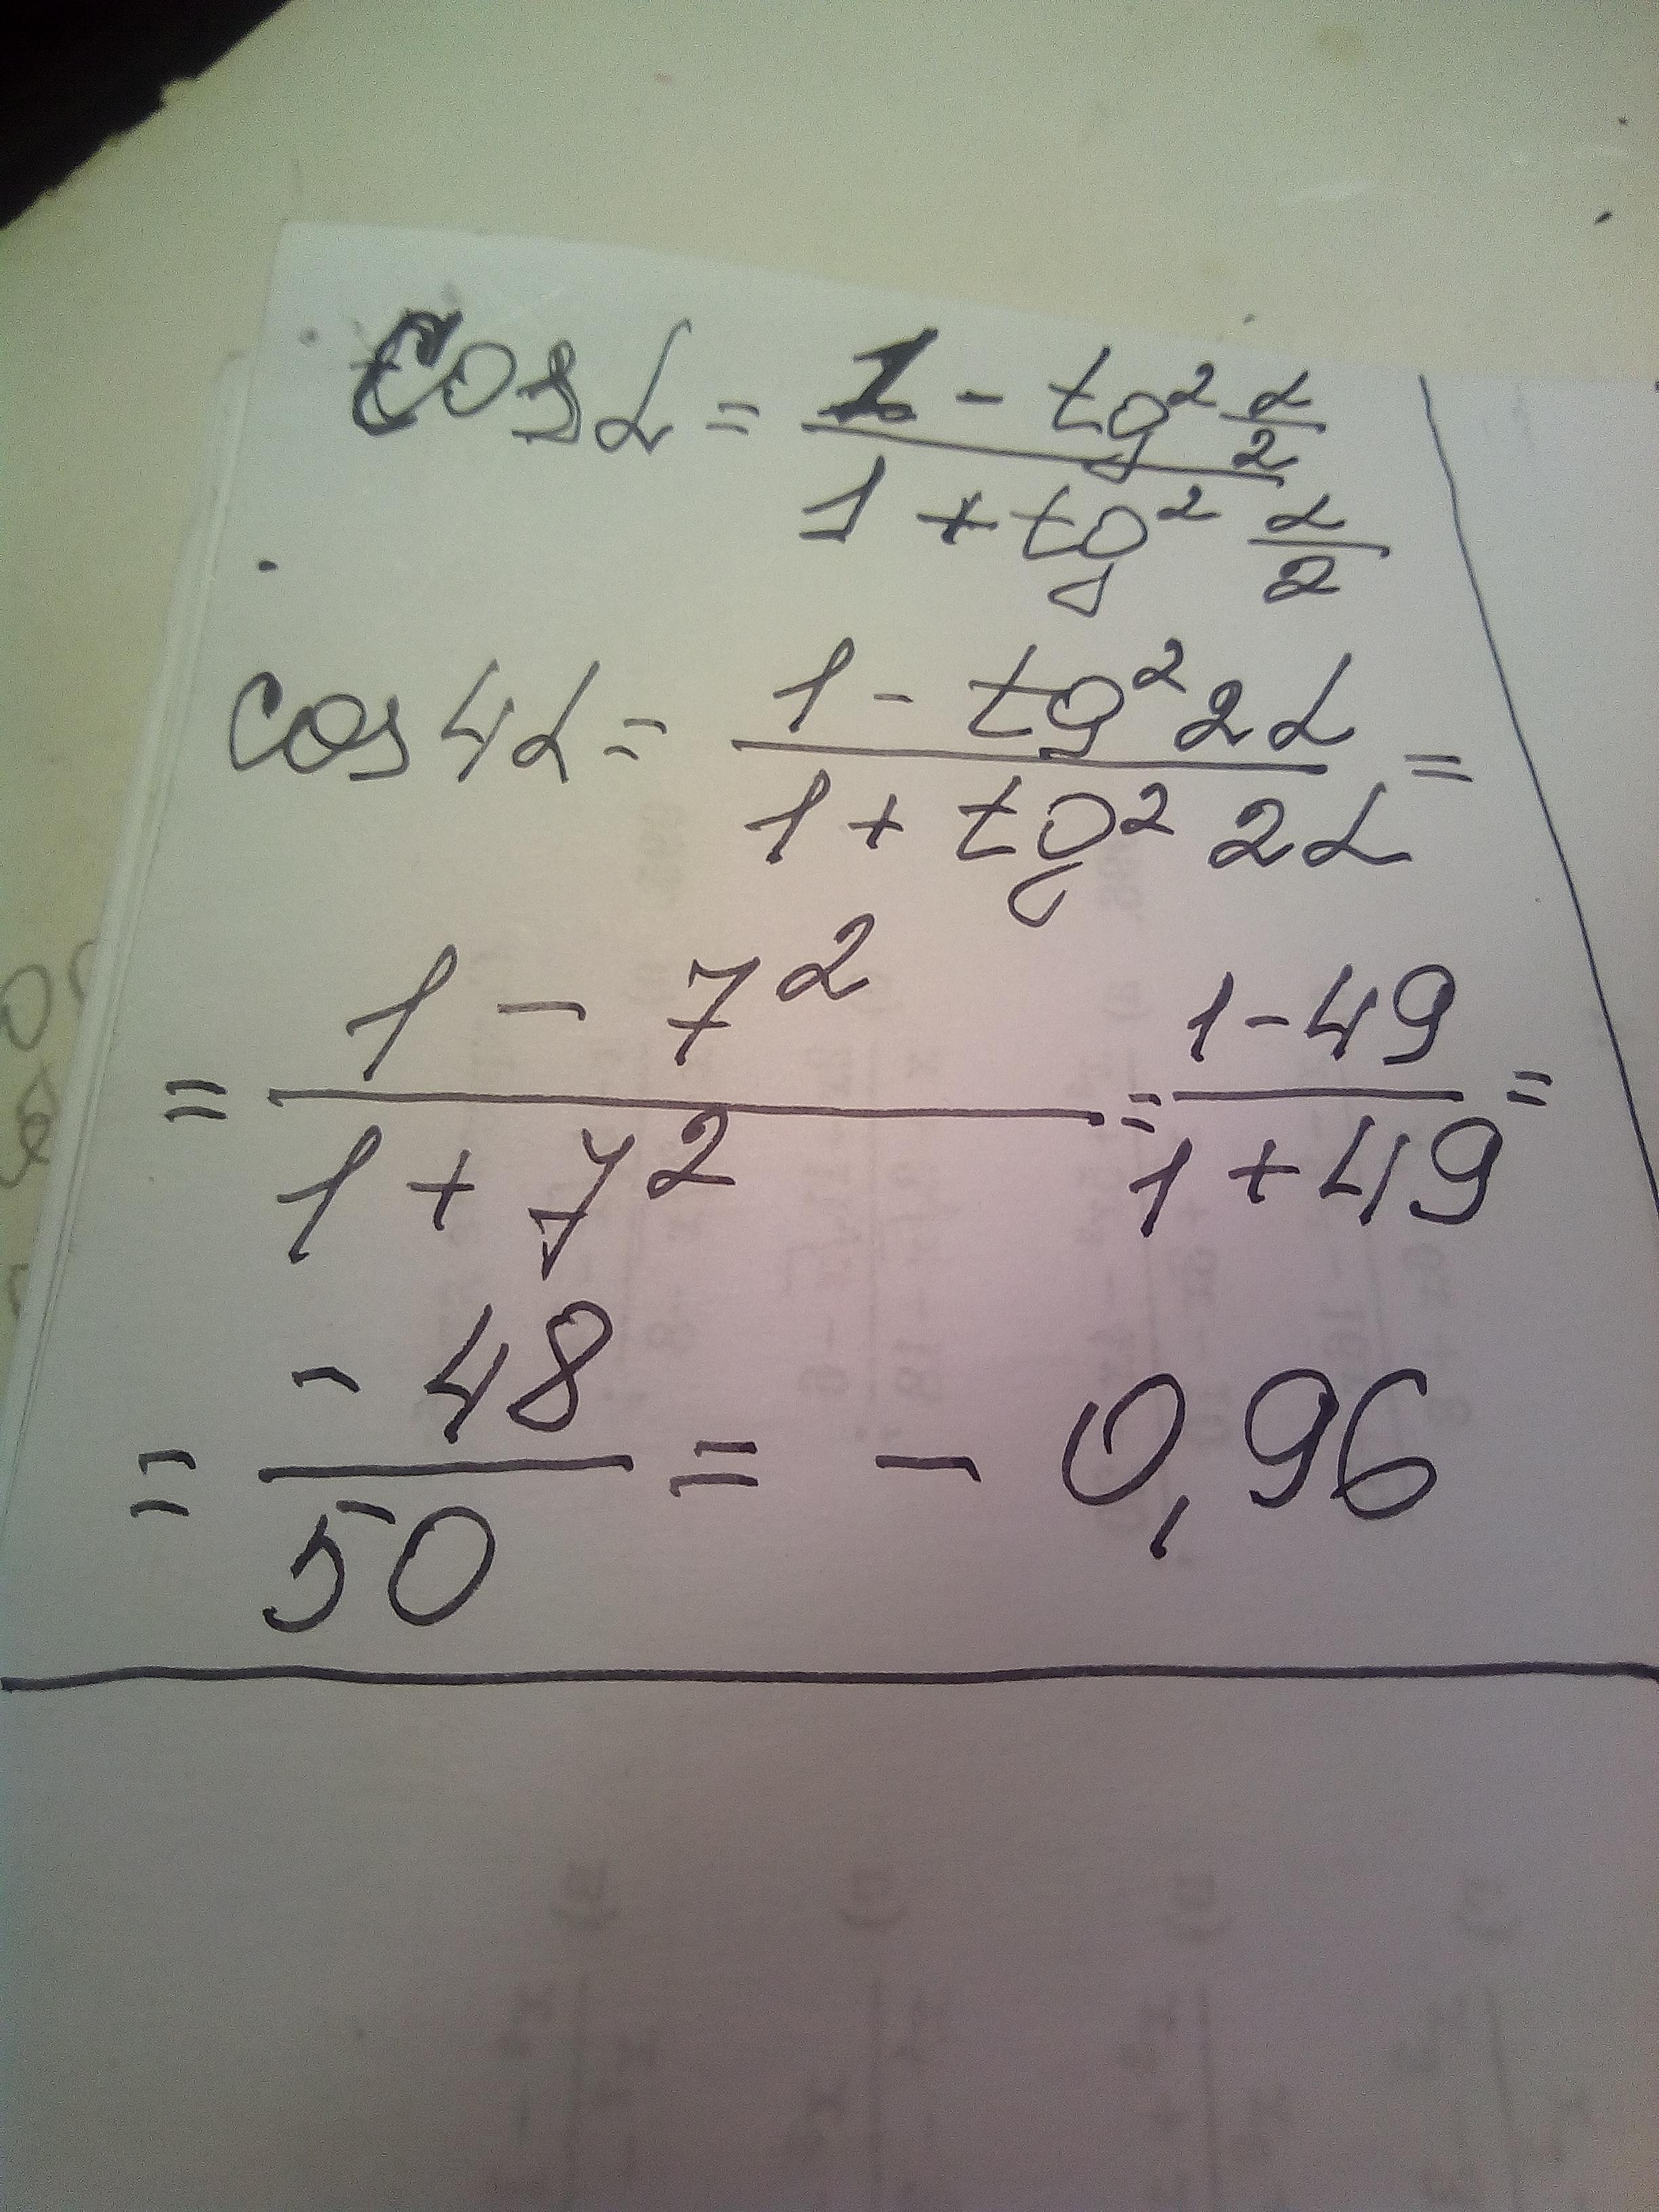 cos α = (1 - tg² α/2) / (1 + tg² α/2)
cos 4α = (1 - tg² 2α) / (1 + tg² 2α) =
= (1 - 7²) / (1 + 7²) = (1 - 49) / (1 + 49) =
= -48 / 50 = - 0,96